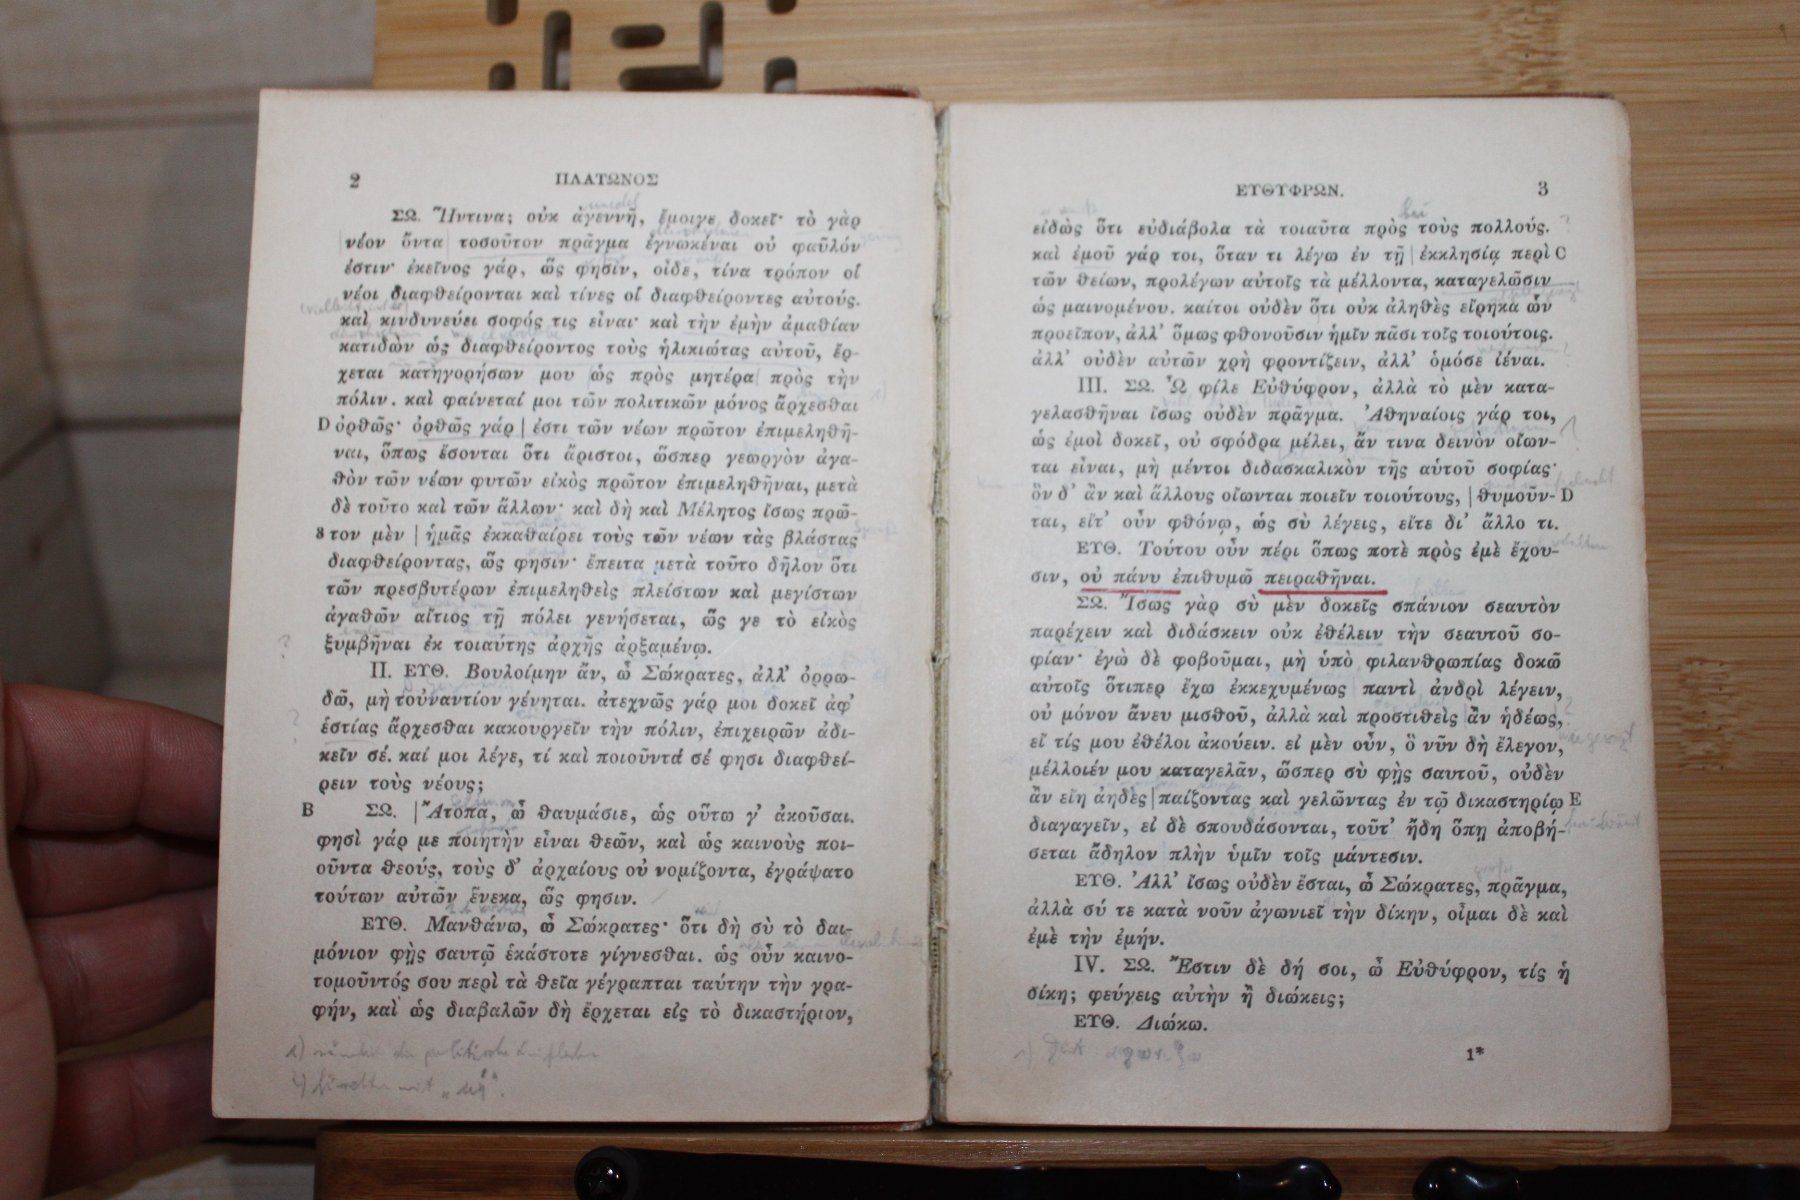 2 ΠΛΑΤΩΝΟΣ
ΣΩ. Ἥντινα; οὐκ ἀγεννῆ, ἔμοιγε δοκεῖ· τὸ γὰρ
νέον ὄντα | τοσοῦτον πρᾶγμα ἐγνωκέναι οὐ φαῦλόν
ἐστιν· ἐκεῖνος γάρ, ὥς φησιν, οἶδε, τίνα τρόπον οἱ
νέοι διαφθείρονται καὶ τίνες οἱ διαφθείροντες αὐτούς.
καὶ κινδυνεύει σοφός τις εἶναι· καὶ τὴν ἐμὴν ἀμαθίαν
κατιδὼν ὡς διαφθείροντος τοὺς ἡλικιώτας αὐτοῦ, ἔρ-
χεται κατηγορήσων μου | ὡς πρὸς μητέρα | πρὸς τὴν
πόλιν. καὶ φαίνεταί μοι τῶν πολιτικῶν μόνος ἄρχεσθαι
D ὀρθῶς· ὀρθῶς γάρ | ἐστι τῶν νέων πρῶτον ἐπιμεληθῆ-
ναι, ὅπως ἔσονται ὅτι ἄριστοι, ὥσπερ γεωργὸν ἀγα-
θὸν τῶν νέων φυτῶν εἰκὸς πρῶτον ἐπιμεληθῆναι, μετὰ
δὲ τοῦτο καὶ τῶν ἄλλων· καὶ δὴ καὶ Μέλητος ἴσως πρῶ-
3 τον μὲν | ἡμᾶς ἐκκαθαίρει τοὺς τῶν νέων τὰς βλάστας
διαφθείροντας, ὥς φησιν· ἔπειτα μετὰ τοῦτο δῆλον ὅτι
τῶν πρεσβυτέρων ἐπιμεληθεὶς πλείστων καὶ μεγίστων
ἀγαθῶν αἴτιος τῇ πόλει γενήσεται, ὥς γε τὸ εἰκὸς
ξυμβῆναι ἐκ τοιαύτης ἀρχῆς ἀρξαμένῳ.
II. ΕΥΘ. Βουλοίμην ἄν, ὦ Σώκρατες, ἀλλ' ὀρρω-
δῶ, μὴ τοὐναντίον γένηται. ἀτεχνῶς γάρ μοι δοκεῖ ἀφ'
ἑστίας ἄρχεσθαι κακουργεῖν τὴν πόλιν, ἐπιχειρῶν ἀδι-
κεῖν σέ. καί μοι λέγε, τί καὶ ποιοῦντά σέ φησι διαφθεί-
ρειν τοὺς νέους;
B ΣΩ. | Ἄτοπα, ὦ θαυμάσιε, ὡς οὕτω γ' ἀκοῦσαι.
φησὶ γάρ με ποιητὴν εἶναι θεῶν, καὶ ὡς καινοὺς ποι-
οῦντα θεούς, τοὺς δ' ἀρχαίους οὐ νομίζοντα, ἐγράψατο
τούτων αὐτῶν ἕνεκα, ὥς φησιν.
ΕΥΘ. Μανθάνω, ὦ Σώκρατες· ὅτι δὴ σὺ τὸ δαι-
μόνιον φῂς σαυτῷ ἑκάστοτε γίγνεσθαι. ὡς οὖν καινο-
τομοῦντός σου περὶ τὰ θεῖα γέγραπται ταύτην τὴν γρα-
φήν, καὶ ὡς διαβαλῶν δὴ ἔρχεται εἰς τὸ δικαστήριον,
ΕΥΘΥΦΡΩΝ. 3
εἰδὼς ὅτι εὐδιάβολα τὰ τοιαῦτα πρὸς τοὺς πολλούς.
καὶ ἐμοῦ γάρ τοι, ὅταν τι λέγω ἐν τῇ | ἐκκλησίᾳ περὶ C
τῶν θείων, προλέγων αὐτοῖς τὰ μέλλοντα, καταγελῶσιν
ὡς μαινομένου. καίτοι οὐδὲν ὅτι οὐκ ἀληθὲς εἴρηκα ὧν
προεῖπον, ἀλλ' ὅμως φθονοῦσιν ἡμῖν πᾶσι τοῖς τοιούτοις.
ἀλλ' οὐδὲν αὐτῶν χρὴ φροντίζειν, ἀλλ' ὁμόσε ἰέναι.
III. ΣΩ. Ὦ φίλε Εὐθύφρον, ἀλλὰ τὸ μὲν κατα-
γελασθῆναι ἴσως οὐδὲν πρᾶγμα. Ἀθηναίοις γάρ τοι,
ὡς ἐμοὶ δοκεῖ, οὐ σφόδρα μέλει, ἄν τινα δεινὸν οἴων-
ται εἶναι, μὴ μέντοι διδασκαλικὸν τῆς αὑτοῦ σοφίας·
ὃν δ' ἂν καὶ ἄλλους οἴωνται ποιεῖν τοιούτους, | θυμοῦν- D
ται, εἴτ' οὖν φθόνῳ, ὡς σὺ λέγεις, εἴτε δι' ἄλλο τι.
ΕΥΘ. Τούτου οὖν πέρι ὅπως ποτὲ πρὸς ἐμὲ ἔχου-
σιν, οὐ πάνυ ἐπιθυμῶ πειραθῆναι.
ΣΩ. Ἴσως γὰρ σὺ μὲν δοκεῖς σπάνιον σεαυτὸν
παρέχειν καὶ διδάσκειν οὐκ ἐθέλειν τὴν σεαυτοῦ σο-
φίαν· ἐγὼ δὲ φοβοῦμαι, μὴ ὑπὸ φιλανθρωπίας δοκῶ
αὐτοῖς ὅτιπερ ἔχω ἐκκεχυμένως παντὶ ἀνδρὶ λέγειν,
οὐ μόνον ἄνευ μισθοῦ, ἀλλὰ καὶ προστιθεὶς ἂν ἡδέως,
εἴ τίς μου ἐθέλοι ἀκούειν. εἰ μὲν οὖν, ὃ νῦν δὴ ἔλεγον,
μέλλοιέν μου καταγελᾶν, ὥσπερ σὺ φῂς σαυτοῦ, οὐδὲν
ἂν εἴη ἀηδὲς | παίζοντας καὶ γελῶντας ἐν τῷ δικαστηρίῳ E
διαγαγεῖν, εἰ δὲ σπουδάσονται, τοῦτ' ἤδη ὅπῃ ἀποβή-
σεται ἄδηλον πλὴν ὑμῖν τοῖς μάντεσιν.
ΕΥΘ. Ἀλλ' ἴσως οὐδὲν ἔσται, ὦ Σώκρατες, πρᾶγμα,
ἀλλὰ σύ τε κατὰ νοῦν ἀγωνιεῖ τὴν δίκην, οἶμαι δὲ καὶ
ἐμὲ τὴν ἐμήν.
IV. ΣΩ. Ἔστιν δὲ δή σοι, ὦ Εὐθύφρον, τίς ἡ
δίκη; φεύγεις αὐτὴν ἢ διώκεις;
ΕΥΘ. Διώκω.
1*